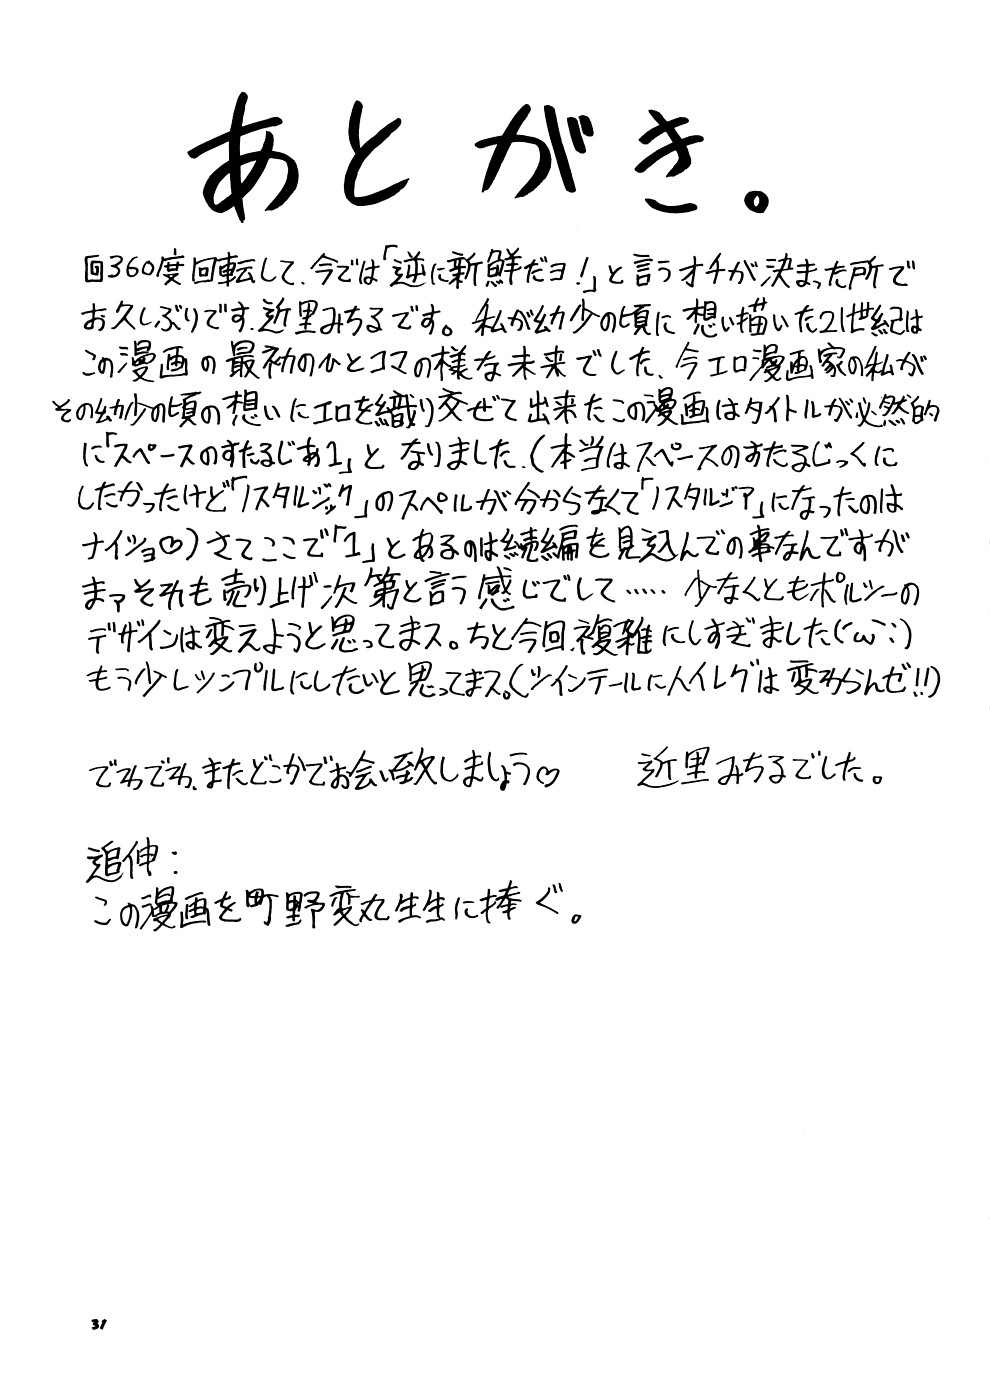 あとがき。
回360度回転して、今では「逆に新鮮だヨ！」と言うオチが決まった所で
お久しぶりです、近里みちるです。私が幼少の頃に想い描いた21世紀は
この漫画の最初のひとコマの様な未来でした、今エロ漫画家の私が
その幼少の頃の想いにエロを織り交ぜて出来たこの漫画はタイトルが必然的
に「スペースのすたるじあ1」となりました、（本当はスペースのすたるじっくに
したかったけど「ノスタルジック」のスペルが分からなくて「ノスタルジア」になったのは
ナイショ♡）さてここで「1」とあるのは続編を見込んでの事なんですが
まァそれも売り上げ次第と言う感じでして……少なくともポルシーの
デザインは変えようと思ってまス。ちと今回、複雑にしすぎました(´ω｀;)
もう少しシンプルにしたいと思ってまス。（ツインテールにハイレグは変わらんゼ!!）
でわでわ、またどこかでお会い致しましょう♡　近里みちるでした。
追伸：
この漫画を町野変丸生生に捧ぐ。
31